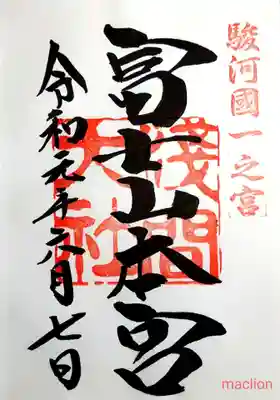 駿河國一之宮
富士山本宮
浅間大社
令和元年六月七日
maclion